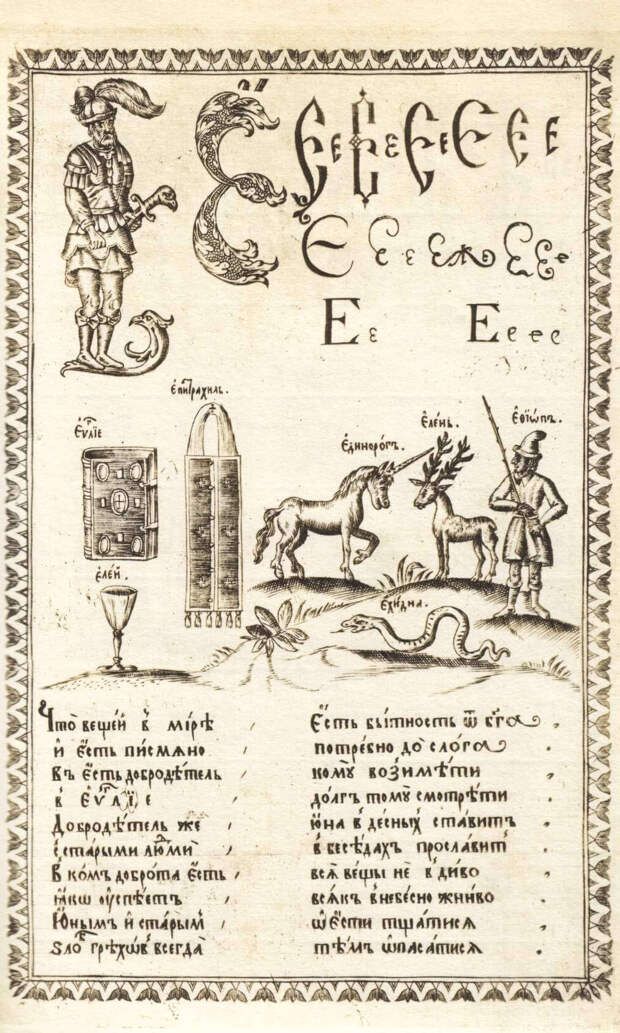 Є Є е Є е Є е Є Є е
Є е е е ѫ е е е
Е е Е е е е
Єпитрахиль.
Єѵ҃лїе
Єдинорогъ.
Єлень.
Єѳїѡпъ.
Єлей.
Єхидна.
Что̀ вещей в̾ мі́рѣ , Єсть бытность ѿ бг҃а ,
и҆ є҆сть писмѧно потребно до слога .
въ є҆сть добродѣтель , комꙋ возимѣти
в̾ єѵ҃лїе , долгъ томꙋ смотрѣти .
Добродѣтель же , ю҆на в̾ десных ставитъ .
с̾ старыми людми , в̾ бесѣдах прославит̾ .
В̾ комъ доброта є҆сть , всѧ вещы не в̾ диво
ꙗ҆кѡ ѹспѣетъ , всѧк̾ в̾ небесно жниво .
Ю҆ным̾ и҆ старым̾ , ѡ҆ є҆сти тщатисѧ .
ѕло грѣхѡв̾ всегда тѣм̾ ѡ҆пасатисѧ .